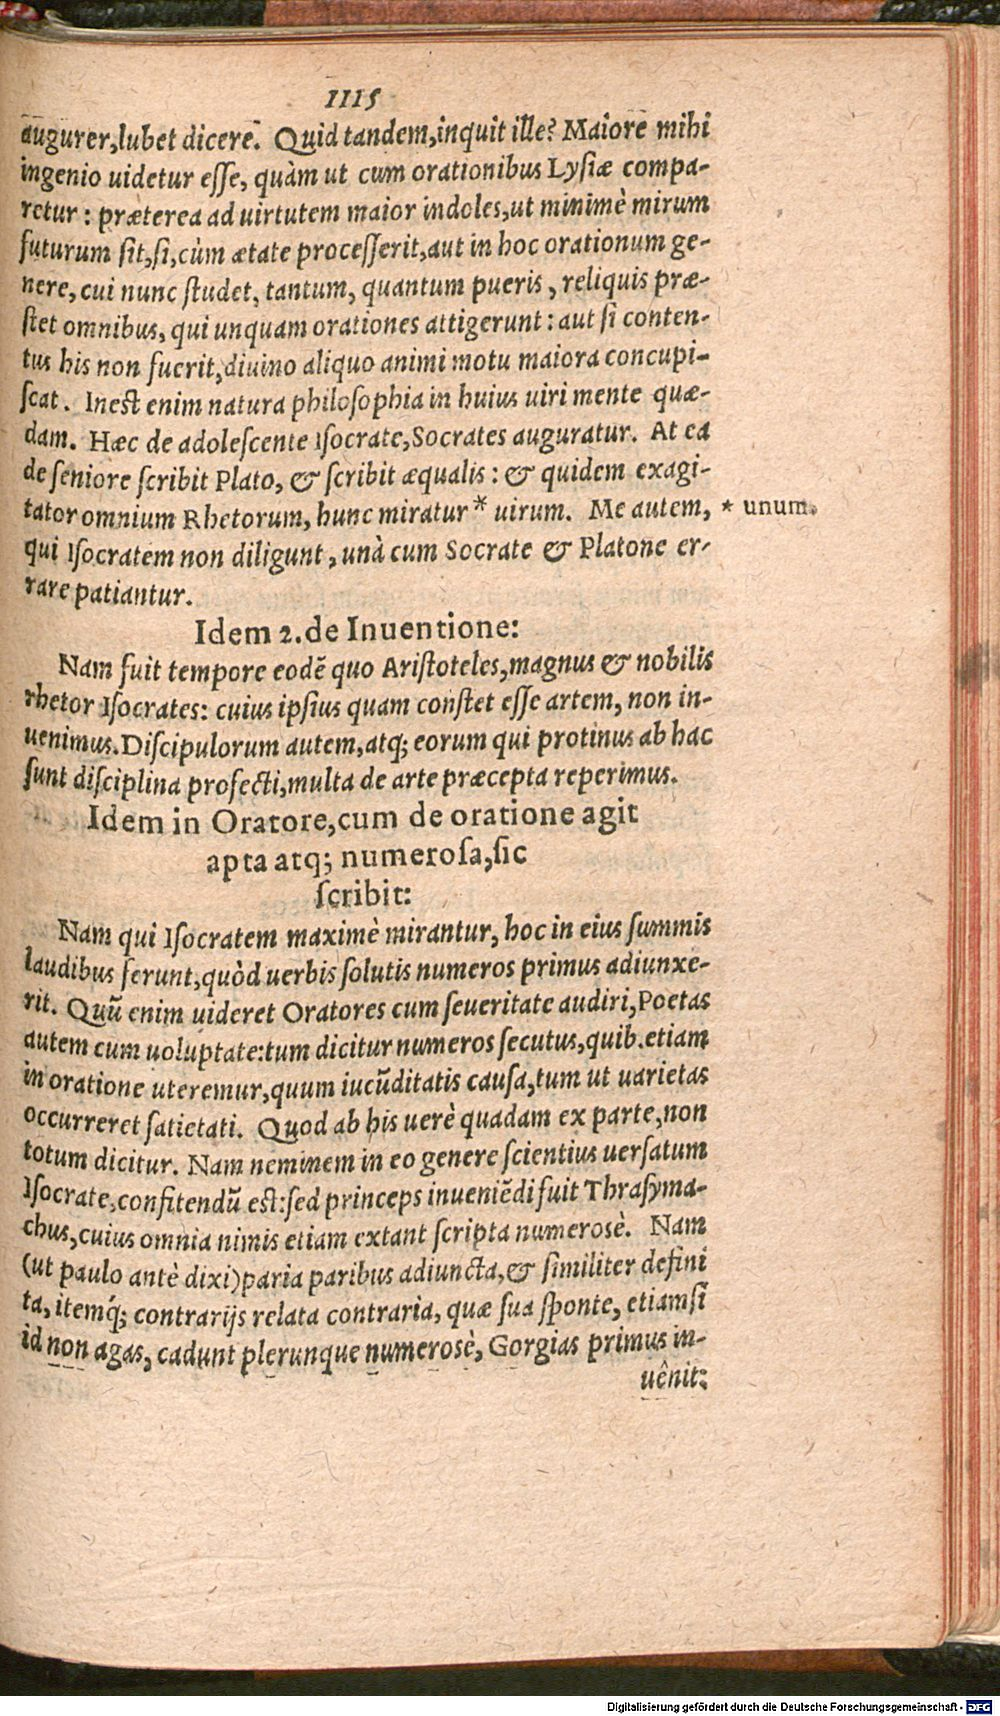 1115
augurer,lubet dicere. Quid tandem,inquit ille? Maiore mihi
ingenio uidetur eſſe, quàm ut cum orationibus Lyſiæ compa-
retur: præterea ad uirtutem maior indoles,ut minimè mirum
futurum ſit,ſi,cùm ætate proceſſerit,aut in hoc orationum ge-
nere, cui nunc ſtudet, tantum, quantum pueris, reliquis præ-
ſtet omnibus, qui unquam orationes attigerunt: aut ſi conten-
tus his non fuerit,diuino aliquo animi motu maiora concupi-
ſcat. Ineſt enim natura philoſophia in huius uiri mente quæ-
dam. Hæc de adoleſcente Iſocrate,Socrates auguratur. At ea
de ſeniore ſcribit Plato, & ſcribit æqualis: & quidem exagi-
tator omnium Rhetorum, hunc miratur * uirum. Me autem, * unum.
qui Iſocratem non diligunt, unà cum Socrate & Platone er-
rare patiantur.
Idem 2. de Inuentione:
Nam fuit tempore eodē quo Ariſtoteles,magnus & nobilis
rhetor Iſocrates: cuius ipſius quam conſtet eſſe artem, non in-
uenimus. Diſcipulorum autem,atq; eorum qui protinus ab hac
ſunt diſciplina profecti,multa de arte præcepta reperimus.
Idem in Oratore,cum de oratione agit
apta atq; numeroſa,ſic
ſcribit:
Nam qui Iſocratem maximè mirantur, hoc in eius ſummis
laudibus ferunt,quòd uerbis ſolutis numeros primus adiunxe-
rit. Quū enim uideret Oratores cum ſeueritate audiri,Poetas
autem cum uoluptate:tum dicitur numeros ſecutus,quib.etiam
in oratione uteremur,quum iucūditatis cauſa,tum ut uarietas
occurreret ſatietati. Quod ab his uerè quadam ex parte,non
totum dicitur. Nam neminem in eo genere ſcientius uerſatum
Iſocrate,confitendū eſt:ſed princeps inueniēdi fuit Thraſyma-
chus,cuius omnia nimis etiam extant ſcripta numerosè. Nam
(ut paulo antè dixi)paria paribus adiuncta,& ſimiliter defini
ta, itemq́; contrarijs relata contraria, quæ ſua ſponte, etiamſi
id non agas, cadunt plerunque numerosè, Gorgias primus in-
uênit:
Digitalisierung gefördert durch die Deutsche Forschungsgemeinschaft - DFG